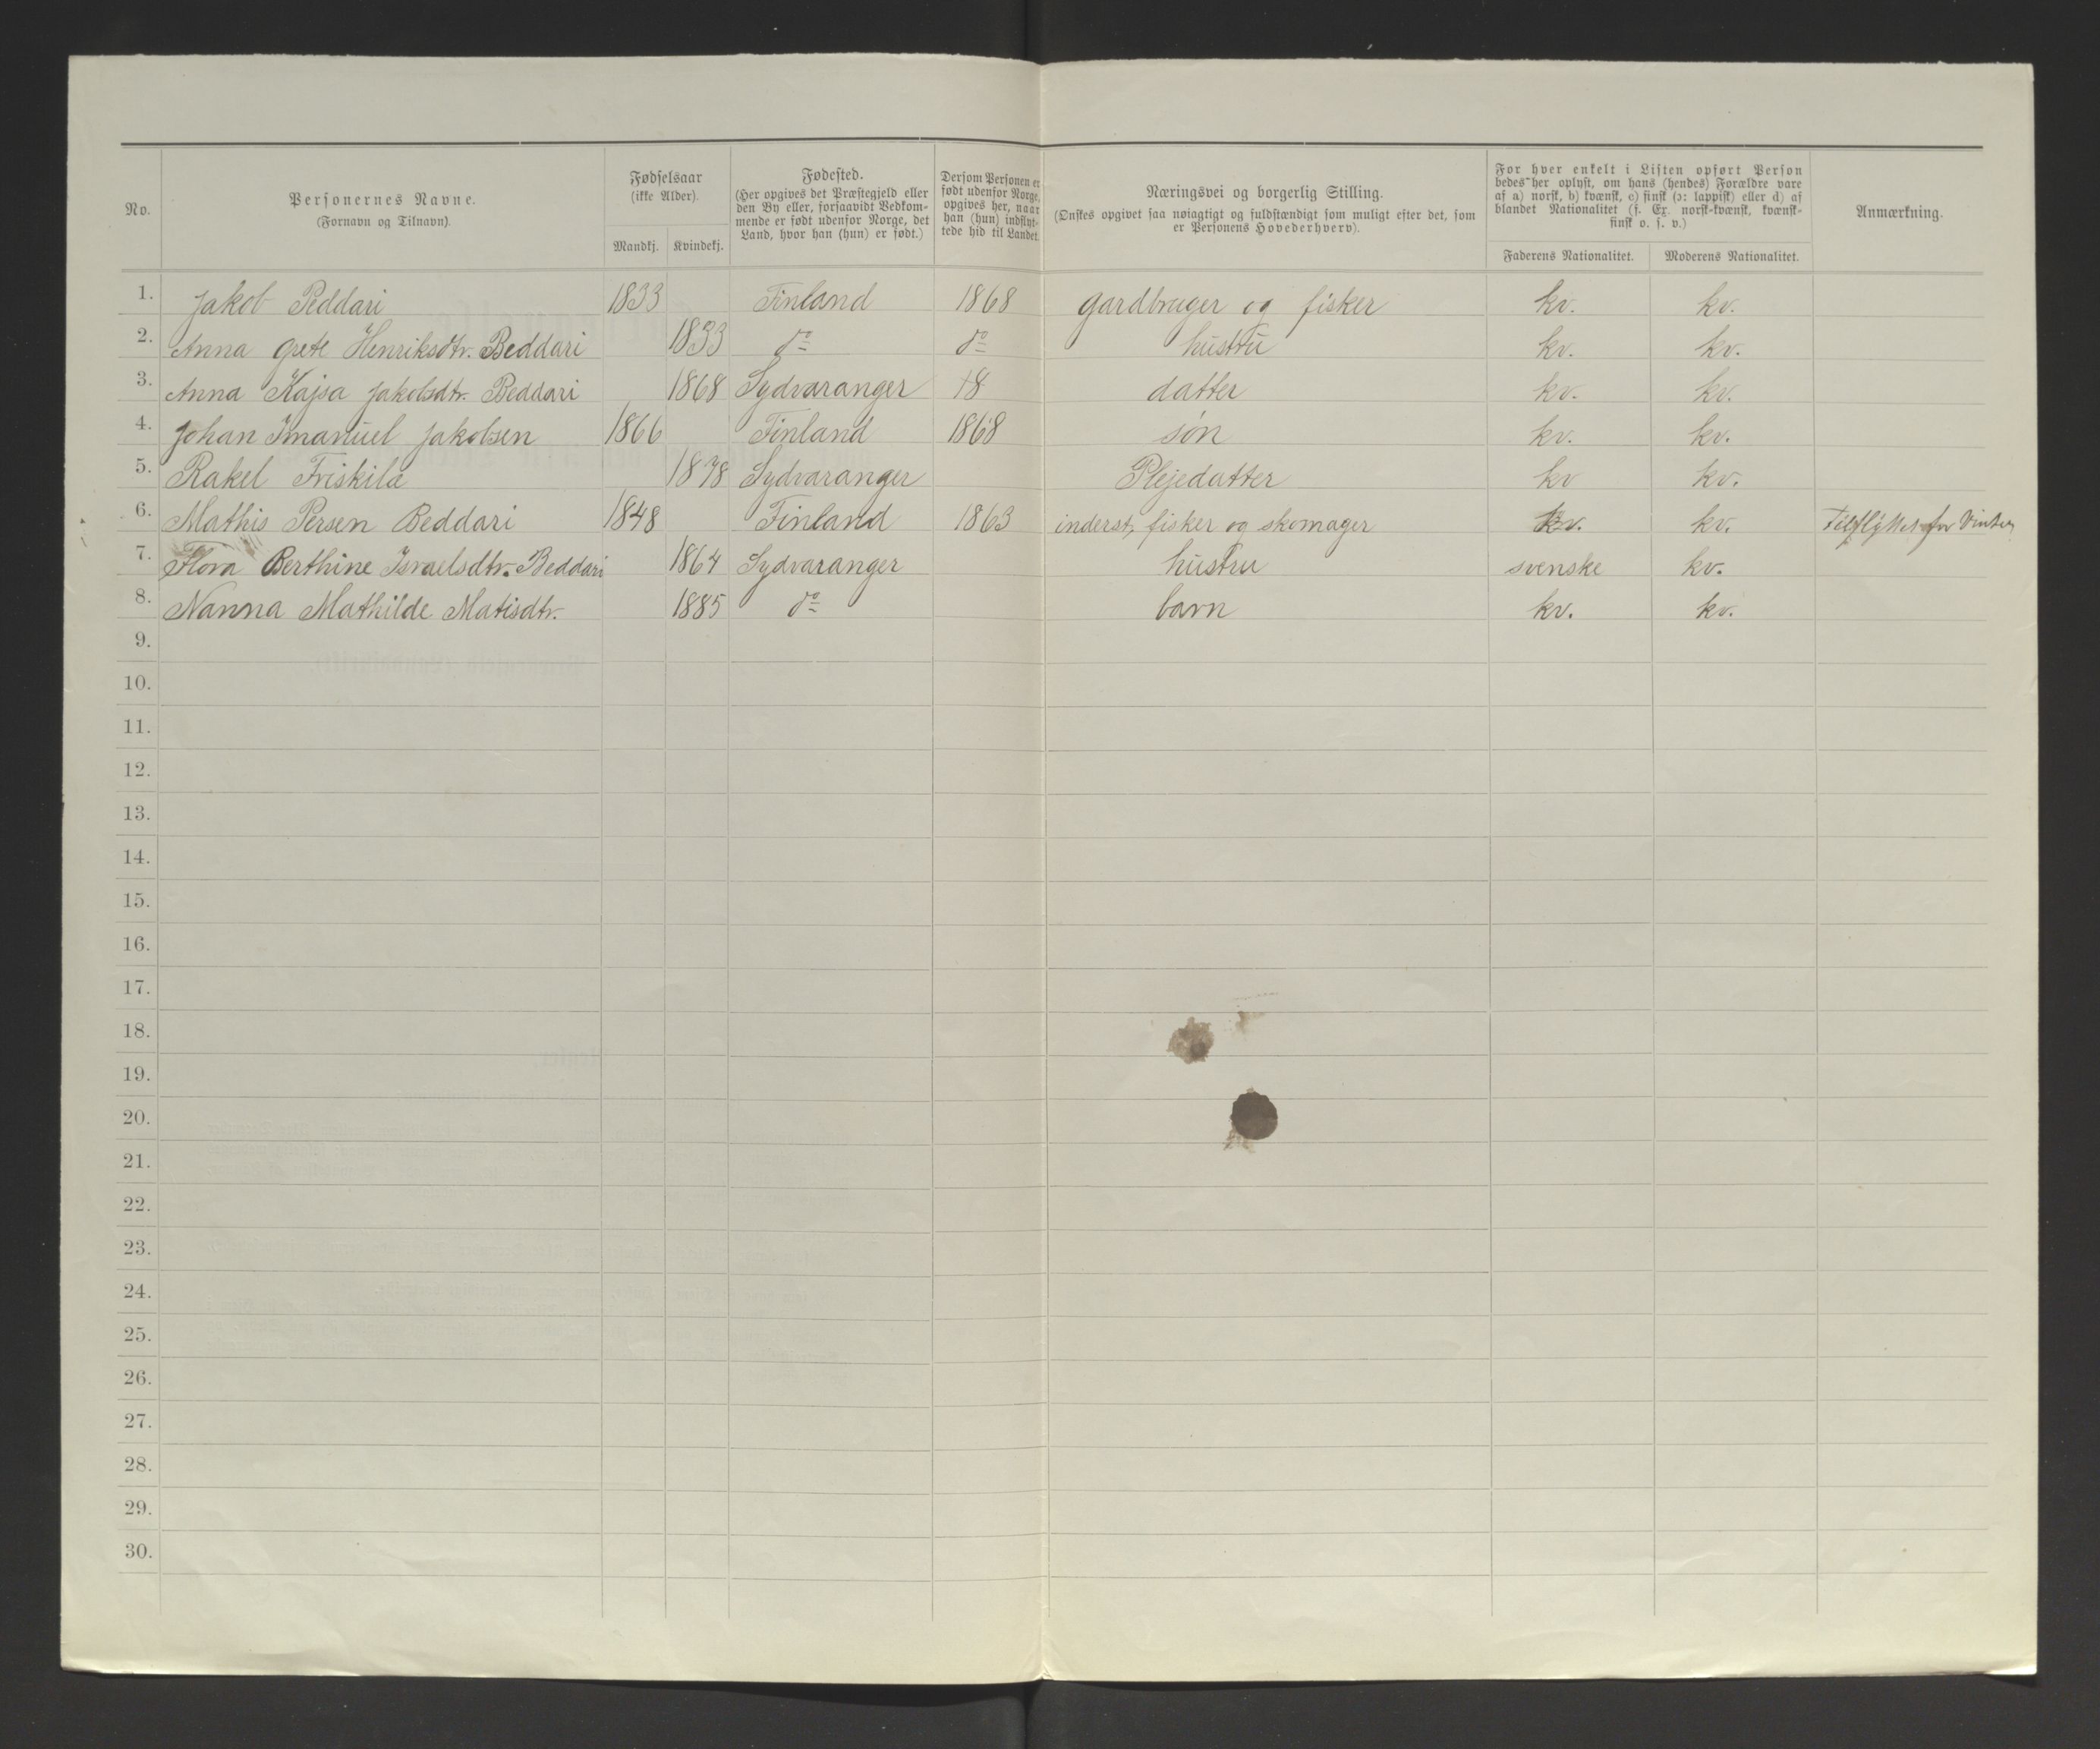 No. Personernes Navne. (Fornavn og Tilnavn). Fødselsaar (ikke Alder). Mandkj. Kvindekj. Fødested. (Her opgives det Præstegjeld eller den By eller, forsaavidt Vedkommende er født udenfor Norge, det Land, hvor han (hun) er født.) Dersom Personen er født udenfor Norge, opgives her, naar han (hun) indflyttede hid til Landet. Næringsvei og borgerlig Stilling. (Ønskes opgivet saa nøiagtigt og fuldstændigt som muligt efter det, som er Personens Hovederhverv). For hver enkelt i Listen opført Person bedes her oplyst, om hans (hendes) Forældre vare af a) norsk, b) kvænsk, c) finsk (ɔ: lappisk) eller d) af blandet Nationalitet (f. Ex. norsk-kvænsk, kvænsk-finsk o. s. v.) Faderens Nationalitet. Moderens Nationalitet. Anmærkning.
1. Jakob Peddari 1833 Finland 1868 gardbruger og fisker kv. kv.
2. Anna Grete Henriksdtr. Beddari 1833 do do hustru kv. kv.
3. Anna Kajsa Jakobsdtr. Beddari 1868 Sydvaranger datter kv. kv.
4. Johan Imanuel Jakobsen 1866 Finland 1868 søn kv. kv.
5. Rakel Friskila 1878 Sydvaranger Plejedatter kv kv.
6. Mathis Persen Beddari 1848 Finland 1863 inderst, fisker og skomager kv. kv. Tilflyttet for Vinteren
7. Flora Berthine Israelsdtr. Beddari 1864 Sydvaranger hustru svenske kv.
8. Nanna Mathilde Matisdtr. 1885 do barn kv. kv.
9.
10.
11.
12.
13.
14.
15.
16.
17.
18.
19.
20.
21.
22.
23.
24.
25.
26.
27.
28.
29.
30.